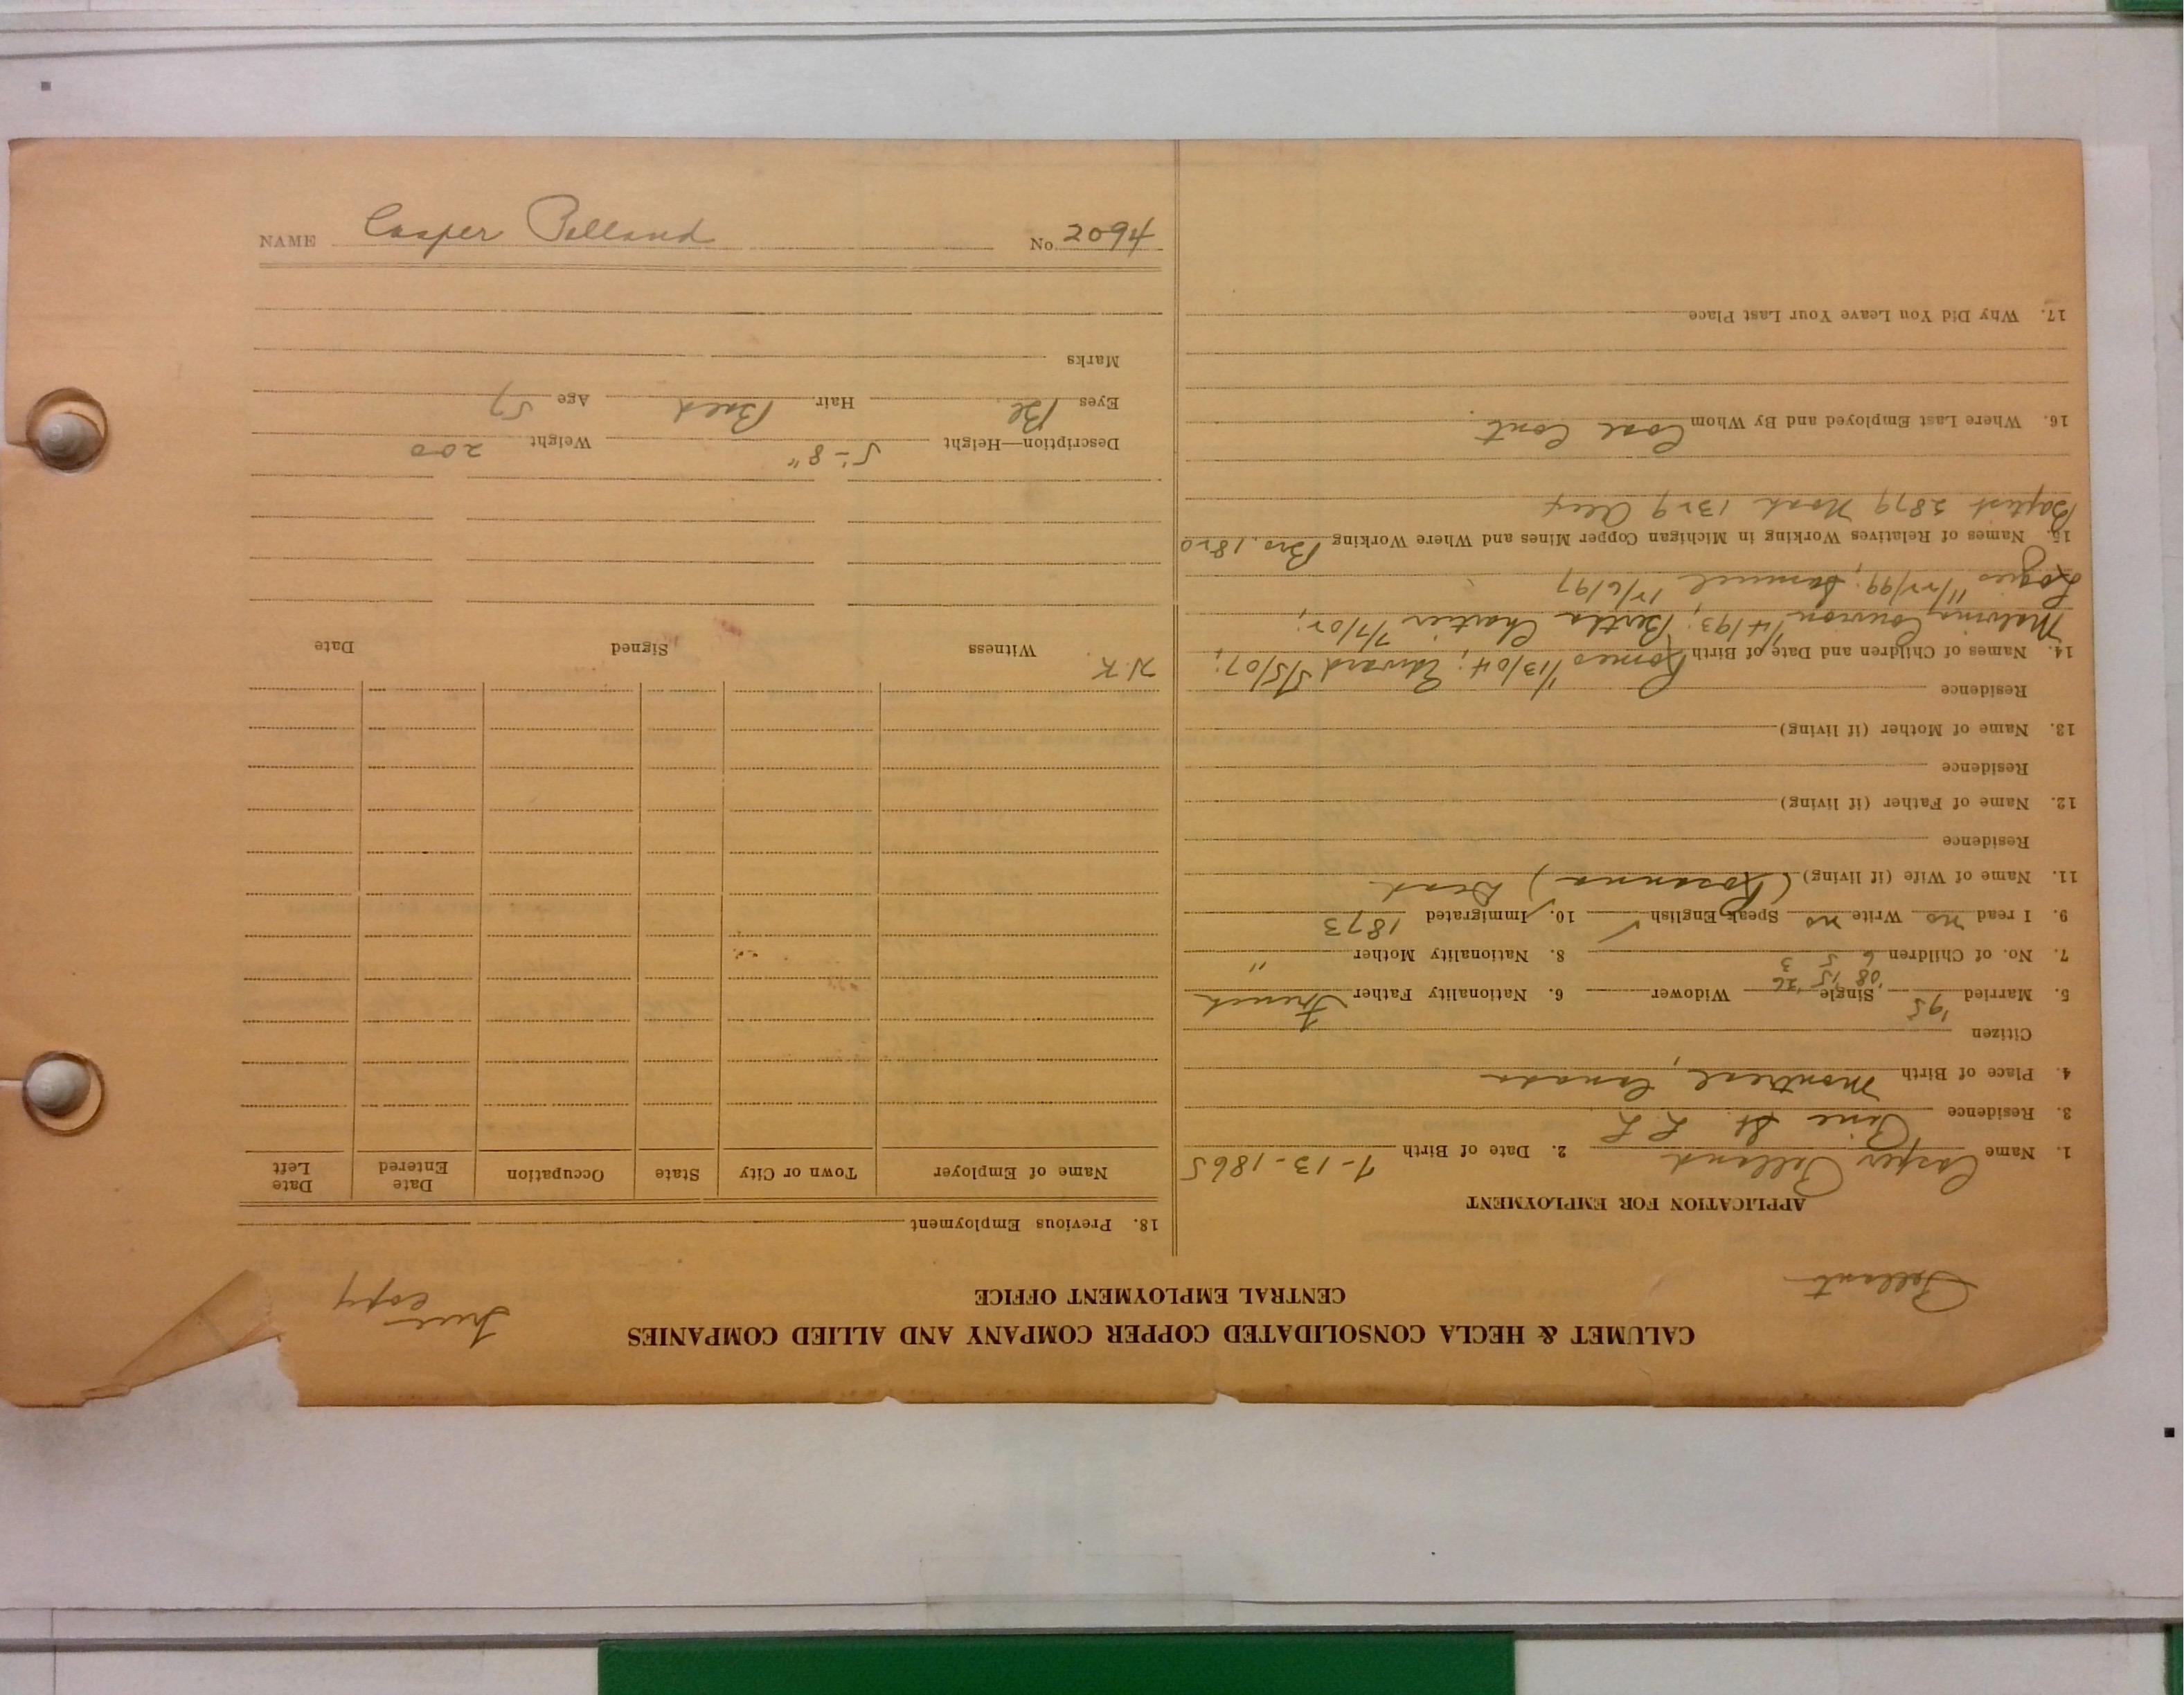 CALUMET & HECLA CONSOLIDATED COPPER COMPANY AND ALLIED COMPANIES
CENTRAL EMPLOYMENT OFFICE
Pelland
True
Copy
APPLICATION FOR EMPLOYMENT
1. Name Casper Pelland 2. Date of Birth 7-13-1865
3. Residence Pine St. L L
4. Place of Birth Montreal, Canada
Citizen
5. Married '95 Single '08 '15 '26 Widower 6. Nationality Father French
7. No. of Children 6 5 3 8. Nationality Mother "
9. I read no Write no Speak English ✓ 10. Immigrated 1873
11. Name of Wife (if living) (Rosanna) Dead
Residence
12. Name of Father (if living)
Residence
13. Name of Mother (if living)
Residence
14. Names of Children and Date of Birth Romeo 1/13/04; Edward 5/5/07;
Malvina 1/4/93; Bertha Chartier 7/7/02;
11/22/99; Samuel 12/6/97
15. Names of Relatives Working in Michigan Copper Mines and Where Working Bro. 1820
Baptist 2879 Noah 1329
16. Where Last Employed and By Whom Coal Cont.
17. Why Did You Leave Your Last Place
18. Previous Employment
Name of Employer Town or City State Occupation Date Entered Date Left
N.K.
Witness Signed Date
Description—Height 5'-8" Weight 200
Eyes Bl. Hair Bald Age 57
Marks
NAME Casper Pelland No. 2094